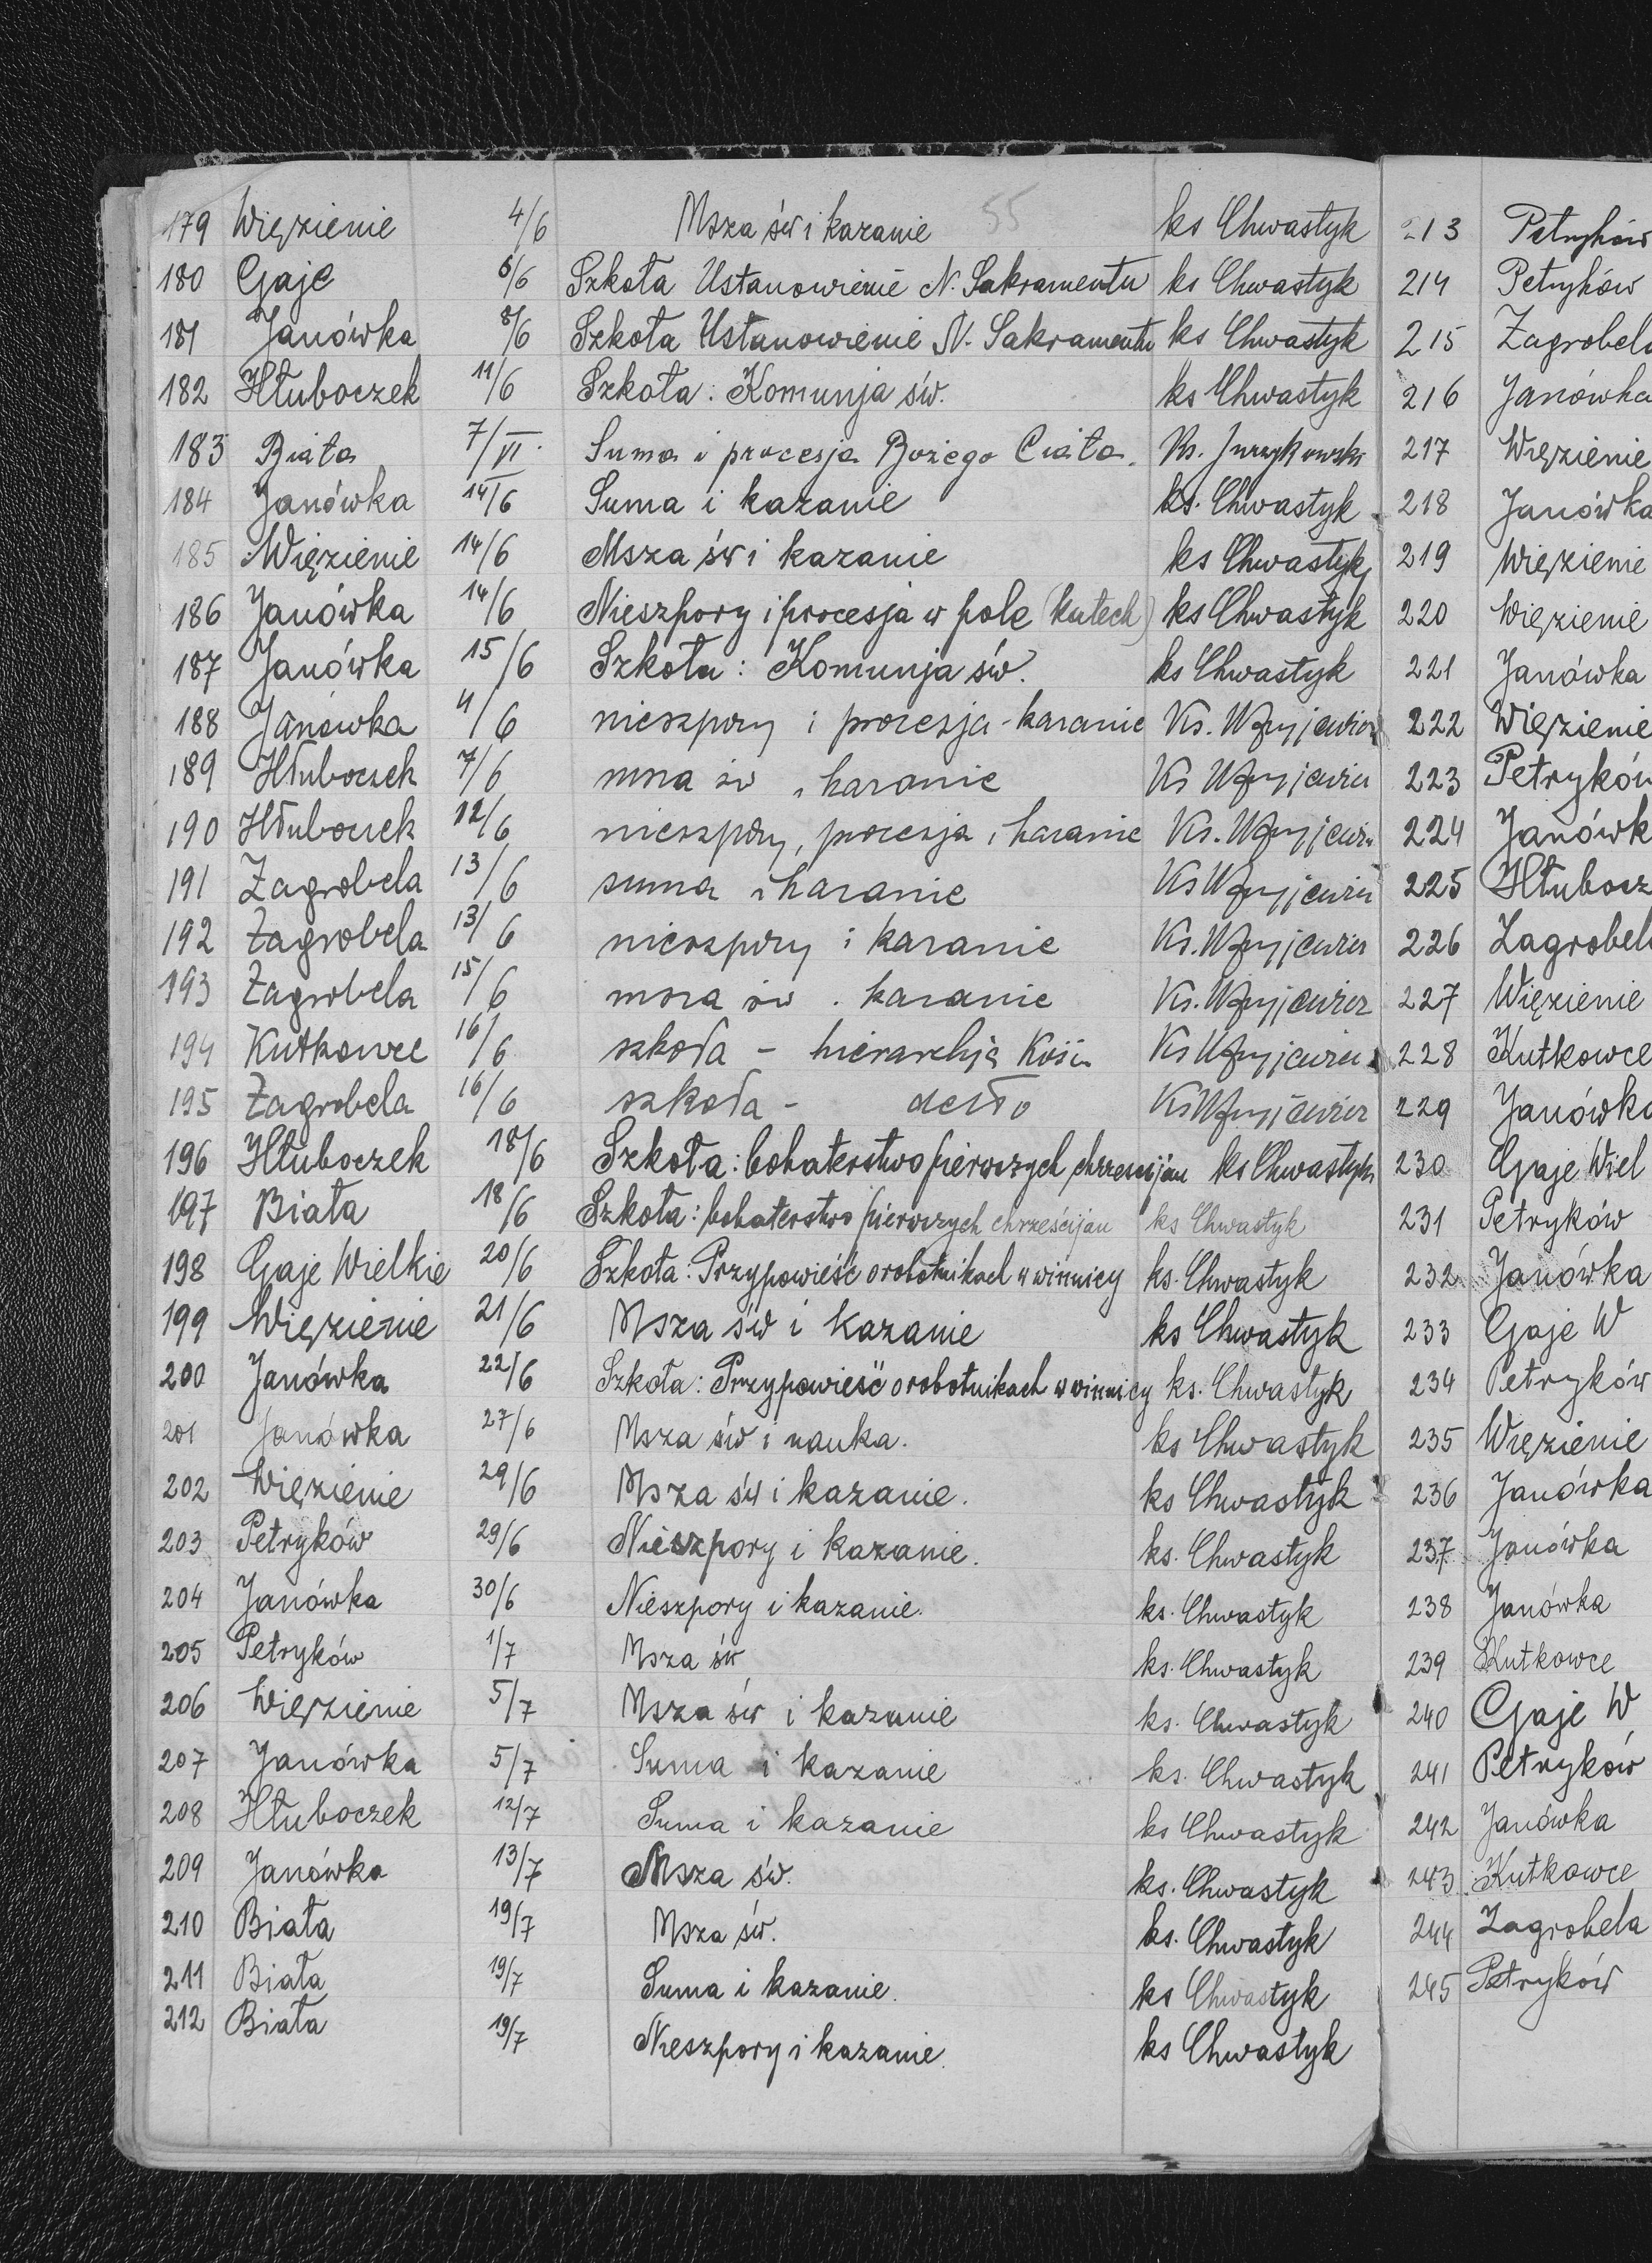 55
179 Więzienie 4/6 Msza św i kazanie ks Chwastyk
180 Gaje 6/6 Szkoła Ustanowienie N. Sakramentu ks Chwastyk
181 Janówka 8/6 Szkoła Ustanowienie N. Sakramentu ks Chwastyk
182 Hłuboczek 11/6 Szkoła: Komunja św. ks Chwastyk
183 Biała 7/VI. Suma i procesja Bożego Ciała. Ks.
184 Janówka 14/6 Suma i kazanie ks. Chwastyk
185 Więzienie 14/6 Msza św i kazanie ks Chwastyk
186 Janówka 14/6 Nieszpory i procesja w pole (katech) ks Chwastyk
187 Janówka 15/6 Szkoła: Komunja św. ks Chwastyk
188 Janówka 4/6 nieszpory i procesja - kazanie Ks.
189 Hłuboczek 7/6 msza św i kazanie Ks
190 Hłuboczek 12/6 nieszpory, procesja i kazanie Ks.
191 Zagrobela 13/6 suma i kazanie Ks
192 Zagrobela 13/6 nieszpory i kazanie Ks.
193 Zagrobela 15/6 msza św. kazanie Ks.
194 Kutkowce 16/6 szkoła - hierarchja Kość. Ks
195 Zagrobela 16/6 szkoła - detto Ks
196 Hłuboczek 18/6 Szkoła: bohaterstwo pierwszych chrześcijan ks Chwastyk
197 Biała 18/6 Szkoła: bohaterstwo pierwszych chrześcijan ks Chwastyk
198 Gaje Wielkie 20/6 Szkoła: Przypowieść o robotnikach w winnicy ks. Chwastyk
199 Więzienie 21/6 Msza św i kazanie ks Chwastyk
200 Janówka 22/6 Szkoła: Przypowieść o robotnikach w winnicy ks. Chwastyk
201 Janówka 27/6 Msza św i nauka. ks Chwastyk
202 Więzienie 29/6 Msza św i kazanie. ks Chwastyk
203 Petryków 29/6 Nieszpory i kazanie. ks. Chwastyk
204 Janówka 30/6 Nieszpory i kazanie. ks. Chwastyk
205 Petryków 1/7 Msza św ks. Chwastyk
206 Więzienie 5/7 Msza św i kazanie ks. Chwastyk
207 Janówka 5/7 Suma i kazanie ks. Chwastyk
208 Hłuboczek 12/7 Suma i kazanie ks Chwastyk
209 Janówka 13/7 Msza św. ks. Chwastyk
210 Biała 19/7 Msza św. ks. Chwastyk
211 Biała 19/7 Suma i kazanie. ks Chwastyk
212 Biała 19/7 Nieszpory i kazanie. ks Chwastyk
213 Petryków
214 Petryków
215 Zagrobela
216 Janówka
217 Więzienie
218 Janówka
219 Więzienie
220 Więzienie
221 Janówka
222 Więzienie
223 Petryków
224 Janówk
225 Hłubocz
226 Zagrobela
227 Więzienie
228 Kutkowce
229 Janówka
230 Gaje Wiel
231 Petryków
232 Janówka
233 Gaje W
234 Petryków
235 Więzienie
236 Janówka
237 Janówka
238 Janówka
239 Kutkowce
240 Gaje W
241 Petryków
242 Janówka
243 Kutkowce
244 Zagrobela
245 Petryków